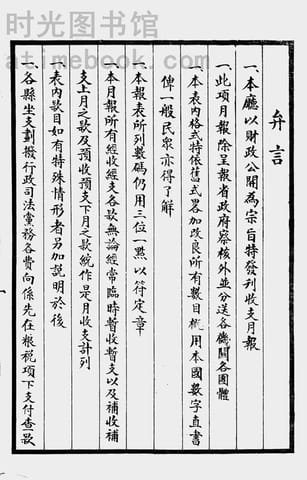 时光图书馆
atimebook.com
弁言
一、本廳以財政公開為宗旨特發刊收支月報
一、此項月報除呈報省政府察核外並分送各廳關各團體
一、本表內格式特依舊式畧加改良所有數目概用本國數字直書
俾一般民衆亦得了解
一、本報表所列數碼仍用三位一點以符定章
一、本月報所有經收經支各款無論經常臨時暫收暫支以及補收補
支上月之款及預收預支下月之款統作是月收支計列
一、表內欵目如有特殊情形者另加説明於後
一、各縣坐支劃撥行政司法黨務各費向係先在粮税項下支付查欵